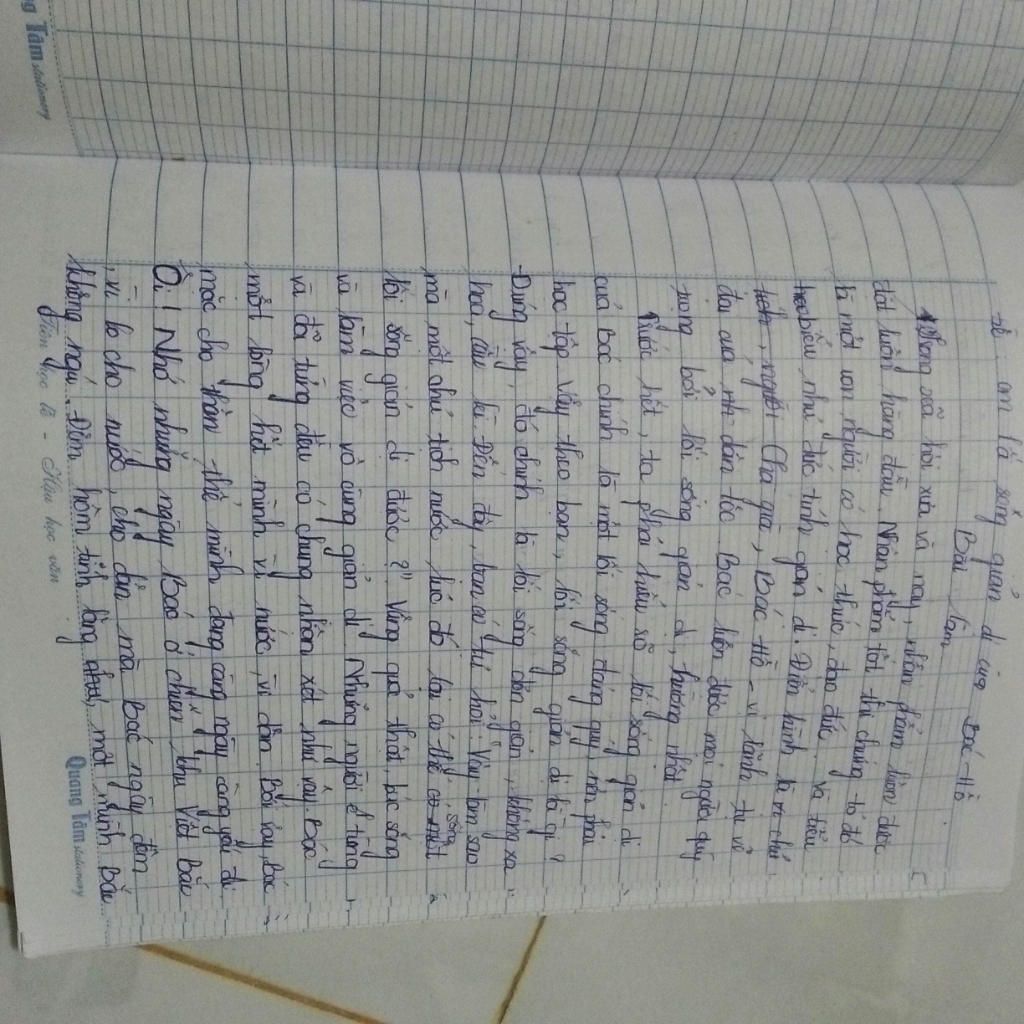 lối sống giản dị của Bác Hồ.
Bài làm
Trong xã hội xưa và nay, nhân phẩm luôn được
đặt luôn hàng đầu. Nhân phẩm tốt thì chứng tỏ đó
là một con người có học thức, đạo đức, và tiêu
biểu như đức tính giản dị. Điển hình là vị chủ
Cha già, Bác Hồ - vị lãnh tụ vĩ
đại của cả dân tộc. Bác luôn được mọi người quý
trọng bởi lối sống giản dị, thường nhật.
Trước hết, ta phải hiểu rõ lối sống giản dị
của Bác chính là một lối sống đáng quý, nên phải
học tập. Vậy theo bạn, lối sống giản dị là gì?
Đúng vậy, đó chính là lối sống đơn giản, không xa
hoa, cầu kì. Đến đây, bạn có tự hỏi: "Vậy làm sao
mà một chủ tịch nước lúc đó lại có thể sống
lối sống giản dị được?" Vâng quả thật, Bác sống
và làm việc vô cùng giản dị. Những người ở từng
và đã từng đều có chung nhận xét như vậy. Bác
một lòng hết mình vì nước, vì dân. Bởi vậy, Bác
mặc cho thân thể mình đang càng ngày càng yếu đi.
Ôi! Nhớ những ngày Bác ở chiến khu Việt Bắc
, vì lo cho nước, cho dân mà Bác ngày đêm
không ngủ. Đêm hôm tĩnh lặng, một mình Bác
Tiên học lễ - Hậu học văn
Quang Tâm stationery
ng Tâm stationery